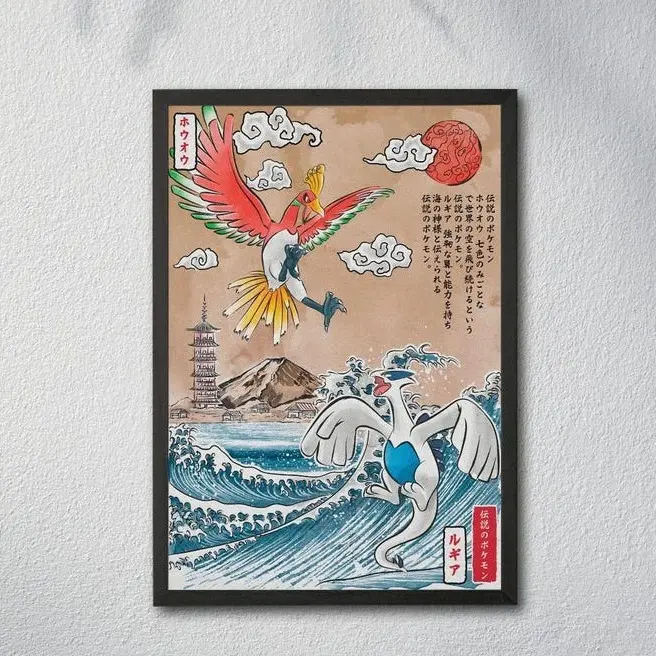 ホウオウ
伝説のポケモン
ホウオウ 七色のみごとな
で世界の空を飛び続けるという
伝説のポケモン。
ルギア 強靭な翼と能力を持ち
海の神様と伝えられる
伝説のポケモン。
ルギア
伝説のポケモン